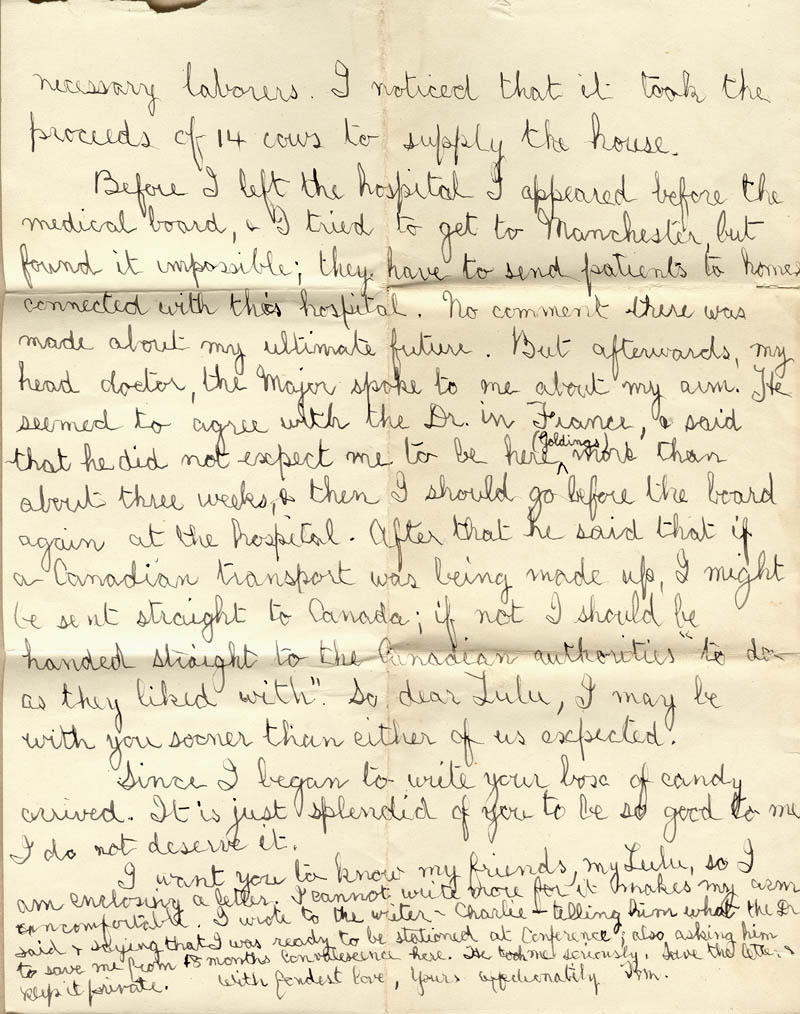 necessary laborers. I noticed that it took the
proceeds of 14 cows to supply the house.
Before I left the hospital I appeared before the
medical board, & I tried to get to Manchester, but
found it impossible; they have to send patients to homes
connected with this hospital. No comment there was
made about my ultimate future. But afterwards, my
head doctor, the Major spoke to me about my arm. He
seemed to agree with the Dr. in France, & said
that he did not expect me to be here (Goldings) more than
about three weeks, & then I should go before the board
again at the hospital. After that he said that if
a Canadian transport was being made up, I might
be sent straight to Canada; if not I should be
handed straight to the Canadian authorities "to do
as they liked with". So dear Lulu, I may be
with you sooner than either of us expected.
Since I began to write your box of candy
arrived. It is just splendid of you to be so good to me
I do not deserve it.
I want you to know my friends, my Lulu, so I
am enclosing a letter. I cannot write more for it makes my arm
uncomfortable. I wrote to the writer - Charlie - telling him what the Dr.
said & saying that I was ready to be stationed at Conference; also asking him
to save me from 18 months convalescence here. He took me seriously. Save the letter &
keep it private. With fondest love, Yours affectionately